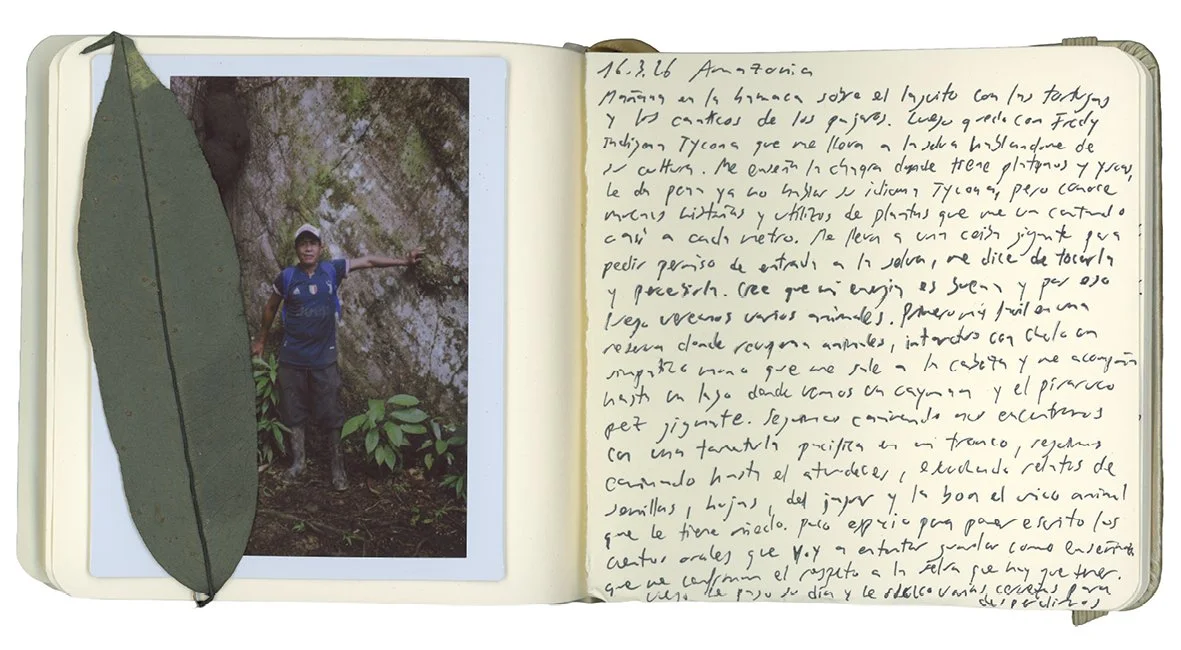 16.3.26 Amazonia
Mañana en la hamaca sobre el laguito con las tortugas
y los canticos de los pajaros. Luego quedo con Fredy
indigena Tycona que me lleva a la selva hablandome de
su cultura. Me enseña la chagra donde tiene platanos y yucas,
le da pena ya no hablar su idioma Tycona, pero conoce
muchas historias y utilizos de plantas que me va contando
casi a cada metro. Me lleva a una ceiba gigante para
pedir permiso de entrada a la selva, me dice de tocarla
y percibirla. Cree que mi energia es buena y por eso
luego veremos varios animales. Primero en una
reserva donde recuperan animales, interactuo con Chela un
simpatico mono que me sale a la cabeza y me acompaña
hasta un lago donde vemos un cayman y el piraruco
pez gigante. Seguimos caminando nos encontramos
con una tarantula pacifica en un tronco, seguimos
caminando hasta el atardecer, escuchando relatos de
semillas, hojas, del jaguar y la boa el unico animal
que le tiene miedo. Poco espacio para poner escrito los
cuentos orales que voy a intentar guardar como enseñanza
que me confirman el respeto a la selva que hay que tener.
Luego le pago su dia y le varias cervezas para
despedirnos